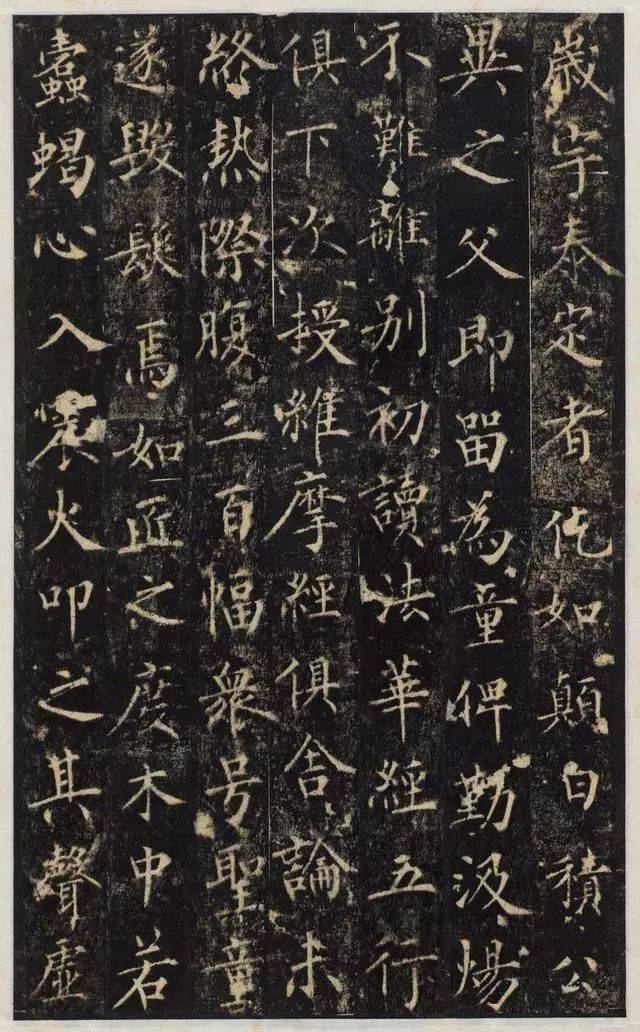 嵗宇泰定者仡如顛白積公
異之父即畱為童俾勤汲煬
不難離别初讀法華經五行
俱下次授維摩經俱舍論未
終熱際腹三百幅衆号聖童
遂毀髮焉如匠之度木中若
蠹蝎心入火叩之其聲虚